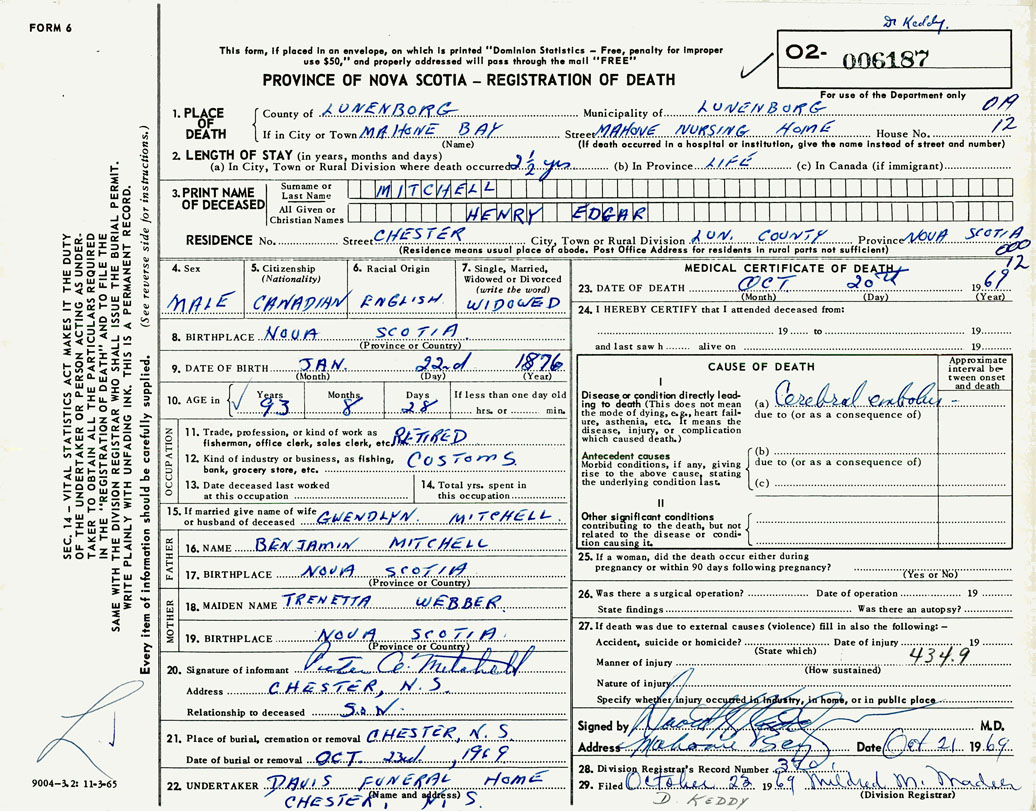 FORM 6
Dr Keddy.
This form, if placed in an envelope, on which is printed "Dominion Statistics – Free, penalty for improper
use $50," and properly addressed will pass through the mail "FREE"
PROVINCE OF NOVA SCOTIA – REGISTRATION OF DEATH
O2- 006187
For use of the Department only
1. PLACE OF DEATH
County of LUNENBORG Municipality of LUNENBORG
If in City or Town MAHONE BAY Street MAHONE NURSING HOME House No. 12
(Name) (If death occurred in a hospital or institution, give the name instead of street and number)
2. LENGTH OF STAY (in years, months and days)
(a) In City, Town or Rural Division where death occurred 2 1/2 yrs (b) In Province LIFE (c) In Canada (if immigrant)
3. PRINT NAME OF DECEASED
Surname or Last Name MITCHELL
All Given or Christian Names HENRY EDGAR
RESIDENCE No. Street CHESTER City, Town or Rural Division LUN. COUNTY Province NOVA SCOTIA
(Residence means usual place of abode. Post Office Address for residents in rural parts not sufficient)
000
12
4. Sex MALE
5. Citizenship (Nationality) CANADIAN
6. Racial Origin ENGLISH
7. Single, Married, Widowed or Divorced (write the word) WIDOWED
8. BIRTHPLACE NOVA SCOTIA.
(Province or Country)
9. DATE OF BIRTH JAN. 22nd 1876
(Month) (Day) (Year)
10. AGE in Years 93 Months 8 Days 28 If less than one day old hrs. or min.
OCCUPATION
11. Trade, profession, or kind of work as fisherman, office clerk, sales clerk, etc. RETIRED
12. Kind of industry or business, as fishing, bank, grocery store, etc. CUSTOMS.
13. Date deceased last worked at this occupation
14. Total yrs. spent in this occupation
15. If married give name of wife or husband of deceased GWENDLYN. MITCHELL.
FATHER
16. NAME BENJAMIN MITCHELL
17. BIRTHPLACE NOVA SCOTIA.
(Province or Country)
MOTHER
18. MAIDEN NAME TRENETTA WEBBER.
19. BIRTHPLACE NOVA SCOTIA.
(Province or Country)
20. Signature of informant Mitchell
Address CHESTER, N.S.
Relationship to deceased SON.
21. Place of burial, cremation or removal CHESTER, N.S.
Date of burial or removal OCT. 23rd, 1969
22. UNDERTAKER DAVIS FUNERAL HOME
(Name and address)
CHESTER, N.S.
MEDICAL CERTIFICATE OF DEATH
23. DATE OF DEATH OCT 20th 1969
(Month) (Day) (Year)
24. I HEREBY CERTIFY that I attended deceased from:
19 to 19
and last saw h alive on 19
CAUSE OF DEATH
Approximate interval between onset and death
I
Disease or condition directly leading to death (This does not mean the mode of dying, e.g., heart failure, asthenia, etc. It means the disease, injury, or complication which caused death.)
(a) Cerebral embolus -
due to (or as a consequence of)
Antecedent causes
Morbid conditions, if any, giving rise to the above cause, stating the underlying condition last.
(b)
due to (or as a consequence of)
(c)
II
Other significant conditions
contributing to the death, but not related to the disease or condition causing it.
25. If a woman, did the death occur either during
pregnancy or within 90 days following pregnancy?
(Yes or No)
26. Was there a surgical operation? Date of operation 19
State findings Was there an autopsy?
27. If death was due to external causes (violence) fill in also the following: –
Accident, suicide or homicide? Date of injury 19
(State which)
434.9
Manner of injury
(How sustained)
Nature of injury
Specify whether injury occurred in industry, in home, or in public place
Signed by M.D.
Address Mahone Bay Date Oct 21 1969
28. Division Registrar's Record Number
29. Filed October 23 1969 Mildred M. Mader
(Division Registrar)
D. KEDDY
SEC. 14 – VITAL STATISTICS ACT MAKES IT THE DUTY
OF THE UNDERTAKER OR PERSON ACTING AS UNDER-
TAKER TO OBTAIN ALL THE PARTICULARS REQUIRED
IN THE "REGISTRATION OF DEATH" AND TO FILE THE
SAME WITH THE DIVISION REGISTRAR WHO SHALL ISSUE THE BURIAL PERMIT.
WRITE PLAINLY WITH UNFADING INK. THIS IS A PERMANENT RECORD.
Every item of information should be carefully supplied. (See reverse side for instructions.)
9004–3.2: 11-3-65